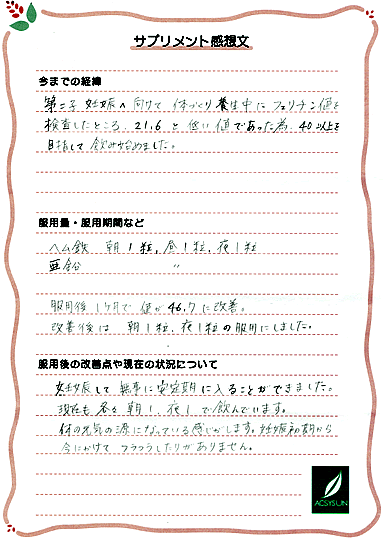 サプリメント感想文
今までの経緯
第二子妊娠へ向けて体づくり養生中にフェリチン値を
検査したところ、21.6と低い値であった為、40以上を
目指して飲み始めました。
服用量・服用期間など
ヘム鉄 朝1粒、昼1粒、夜1粒
亜鉛 〃
服用後1ヶ月で値が46.7に改善。
改善後は朝1粒、夜1粒の服用にしました。
服用後の改善点や現在の状況について
妊娠して無事に安定期に入ることができました。
現在も各々朝1、夜1で飲んでいます。
体の元気の源になっている感じがします。妊娠初期から
今にかけてフラフラしたりがありません。
ACSYSLIN